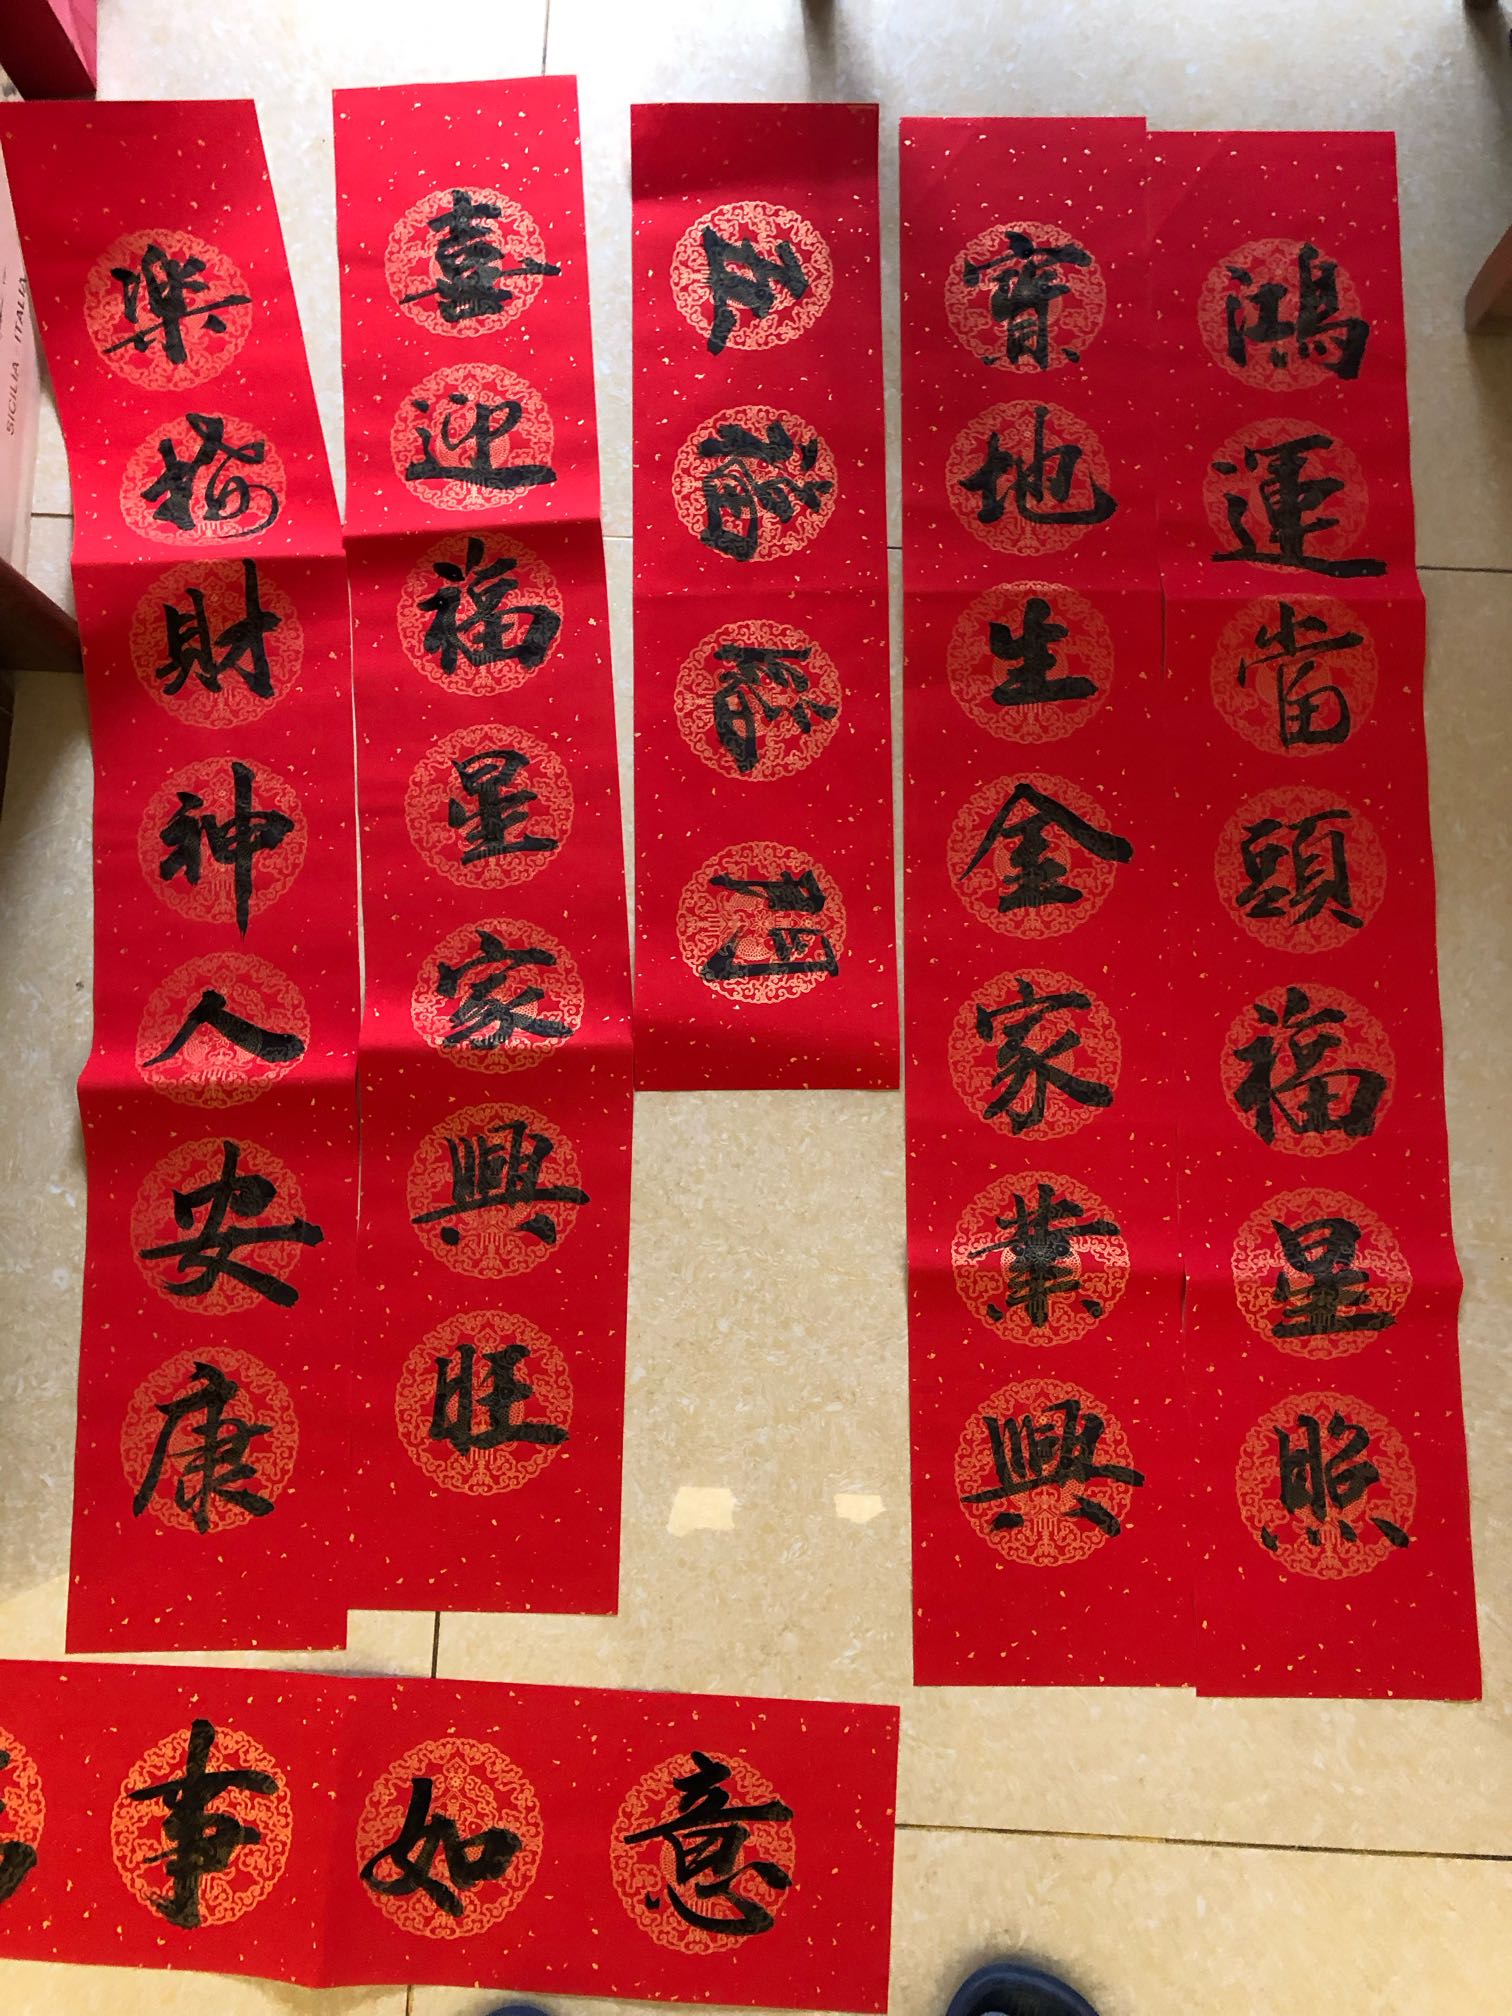 鴻運當頭福星照
寶地生金家業興
五福臨門
喜迎福星家興旺
樂接財神人安康
事如意
SICILIA ITALIA